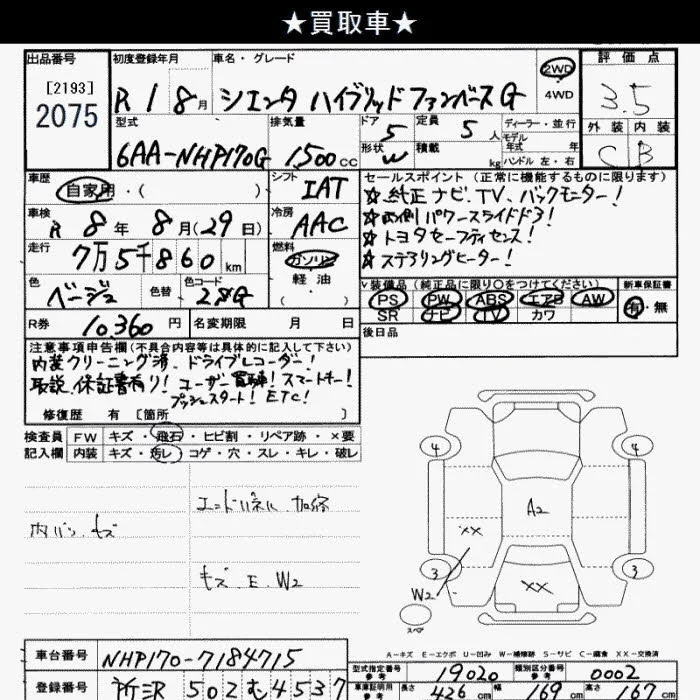 ★買取車★
出品番号 [2193] 2075
初度登録年月 R 1 8 月
車名・グレード シエンタ ハイブリッド ファンベースG
2WD 4WD
評価点 3.5
外装 内装 C B
型式 6AA-NHP170G
排気量 1500 cc
ドア 5 定員 5 人
形状 W 積載 kg
ディーラー・並行
モデル年式 年
ハンドル 左・右
車歴 自家用・( )
シフト IAT
車検 R 8 年 8 月(29日)
冷房 AAC
走行 7万5千860 km
燃料 ガソリン 軽油 ( )
色 ベージュ 色替 色コード
R券 10,360 円 名変期限 月 日
セールスポイント (正常に機能するものに限ります)
☆純正ナビ.TV.バックモニター!
☆両側パワースライドドア!
☆トヨタセーフティセンス!
☆ステアリングヒーター!
∨装備品(純正品に限り○をつけてください) 新車保証書
PS PW ABS エアB AW 有・無
SR ナビ TV カワ
後日品
注意事項申告欄(不具合内容等は具体的に記入して下さい)
内装クリーニング済.ドライブレコーダー!
取説.保証書有り! ユーザー買取車! スマートキー!
プッシュスタート! ETC!
修復歴 有 [箇所 ]
検査員 FW キズ・飛石・ヒビ割・リペア跡・×要
記入欄 内装 キズ・汚レ・コゲ・穴・スレ・キレ・破レ
エンドパネル.加修
内バリ.キズ
キズ.E.W2
4 4
A2
XX
3 3
W2 XX
スペア
A-キズ E-エクボ U-凹み W-補修跡 S-サビ C-腐食 XX-交換済
車台番号 NHP170-7184715
型式指定番号 参考 19020 類別区分番号 参考 0002
登録番号 所沢 502 む 4537
車庫証明用 参考 長さ 426 cm 幅 169 cm 高さ 167 cm